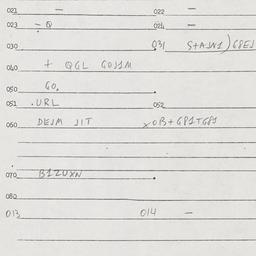 021 — 022 —
023 – Q 024 –
030 031 S+AJN1)G8EJ
040 + QGL GOJ1M
050 GO.
051 .URL 052
060 DEJM JIT xOB+G81TG81
070 B1ZUXN .
080
013 014 –